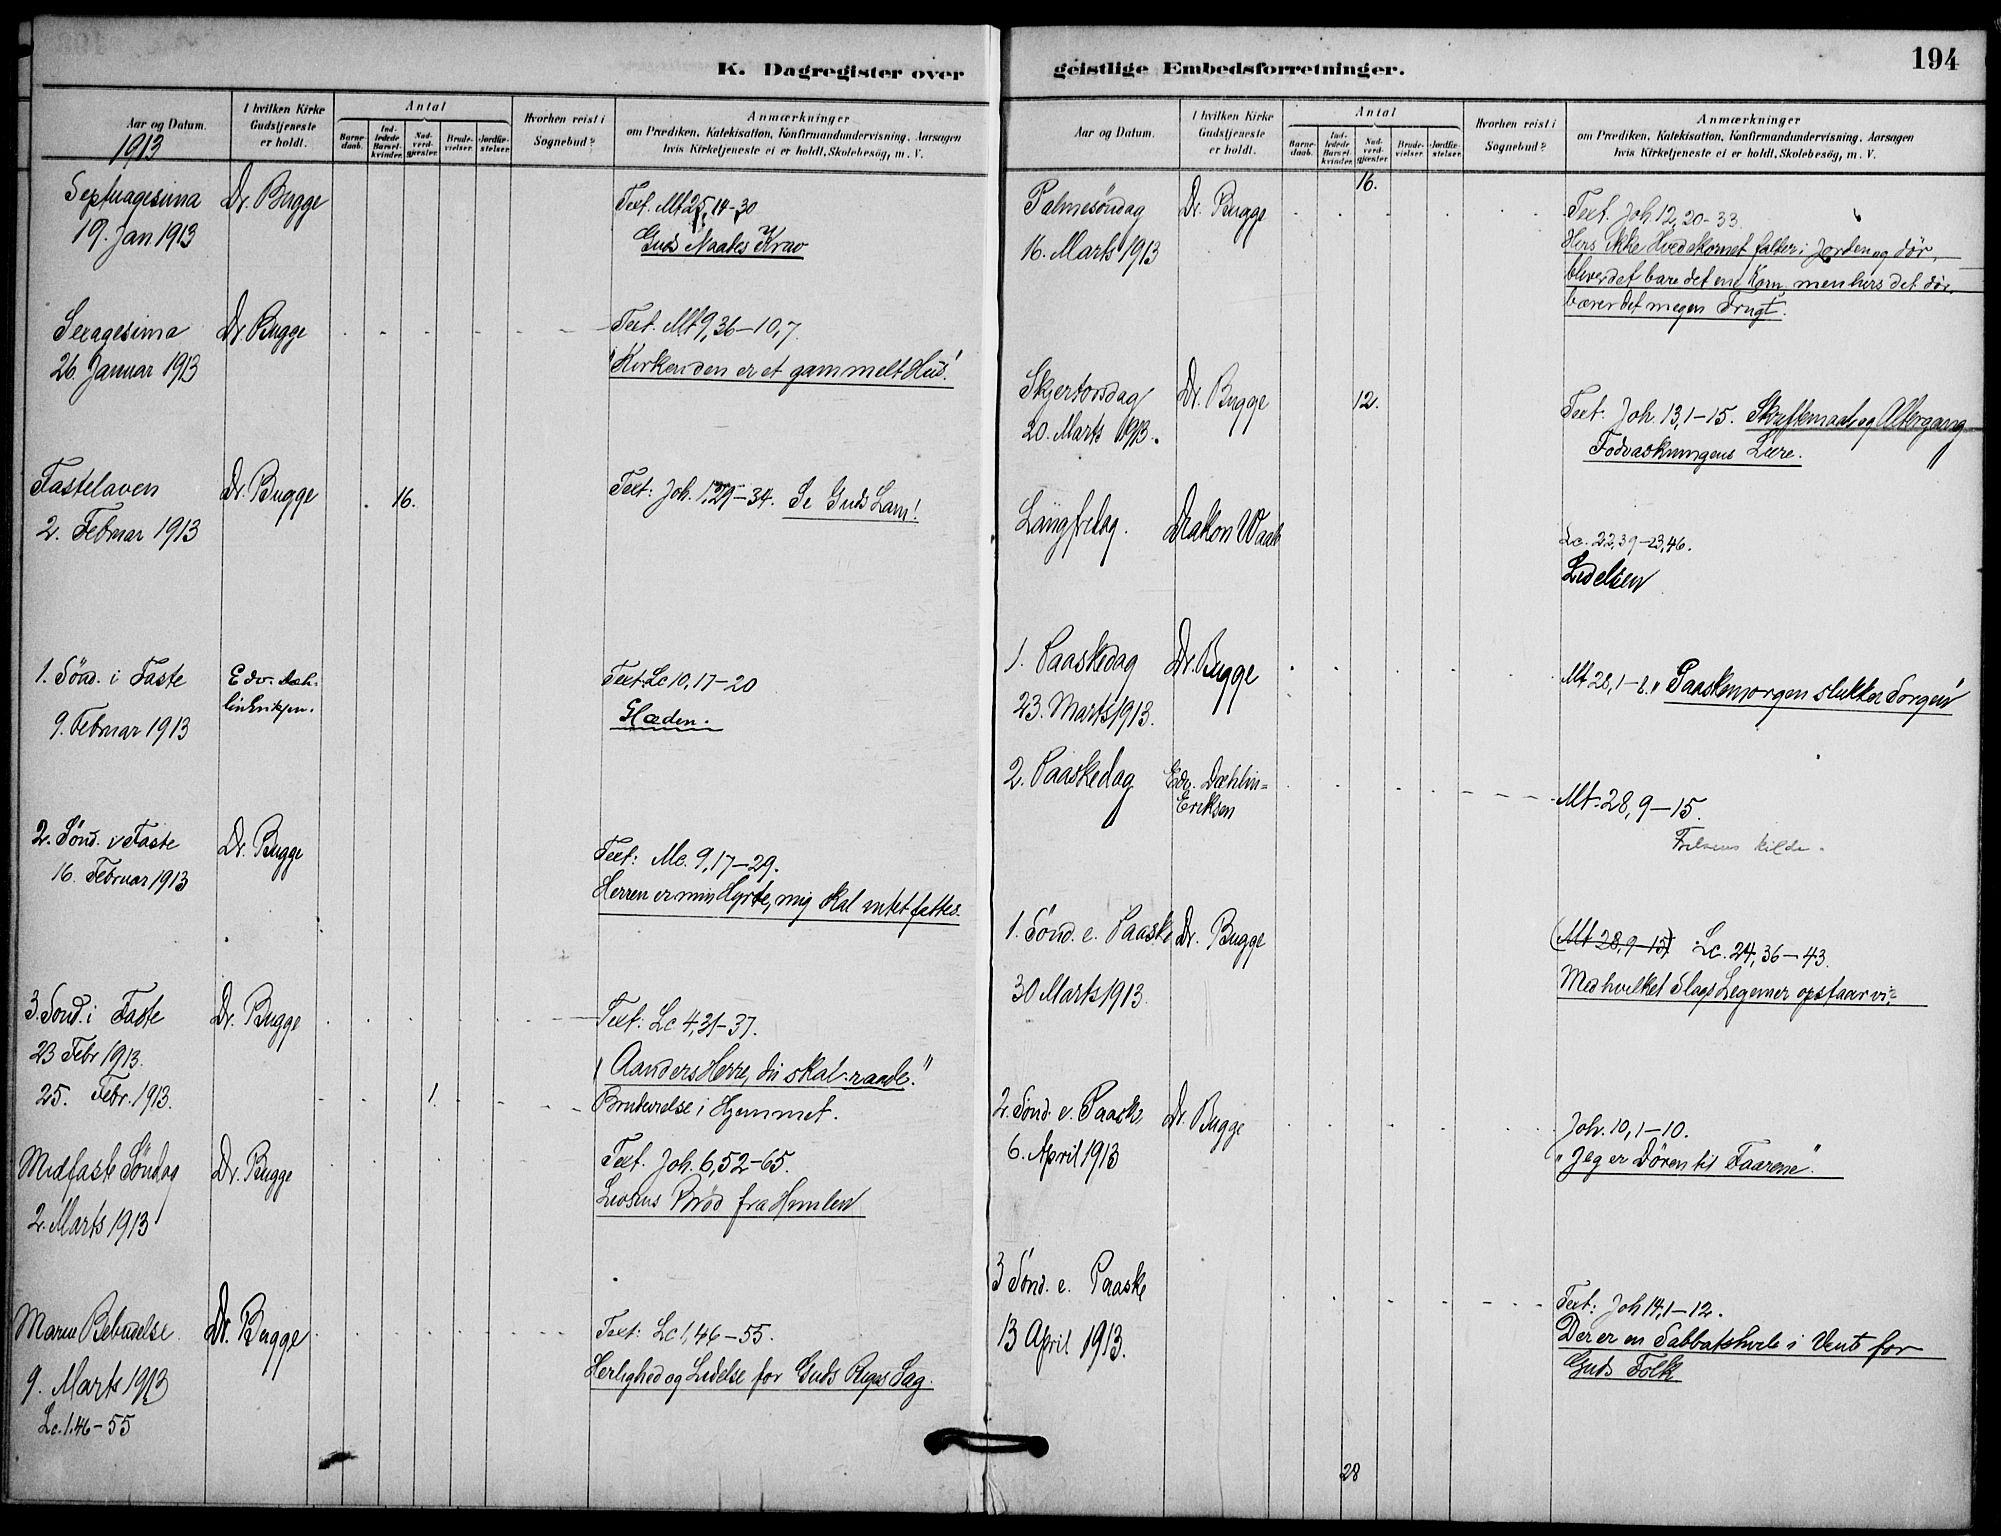 194
K. Dagregister over
geistlige Embedsforretninger.
Aar og Datum.
1913
I hvilken Kirke
Gudstjeneste
er holdt.
Antal
Barne-
daab.
Ind-
ledede
Barsel-
kvinder.
Nad-
verd-
gjæster.
Brude-
vielser.
Jordfæ-
stelser.
Hvorhen reist i
Sognebud?
Anmærkninger
om Prædiken, Katekisation, Konfirmandundervisning, Aarsagen
hvis Kirketjeneste ei er holdt, Skolebesøg, m. V.
Septuagesima Dr. Bugge Text. Mt 25, 14-30
19. Jan 1913 Guds Naades Krav
Sexagesima Dr. Bugge Text. Mt 9,36-10,7.
26. Januar 1913 "Kirken den er et gammelt Hus!
Fastelaven Dr. Bugge 16. Text: Joh. 1,29-34. Se Guds Lam!
2. Februar 1913
1. Sönd. i Faste Edv. Dæh-
lin Eriksen. Text: Lc 10,17-20
9. Februar 1913 Glæden.
2. Sönd. i Faste Dr. Bugge Text: Mc. 9,17-29.
16. Februar 1913 Herren er min Hyrde, mig skal intet fattes.
3. Sönd. i Faste Dr. Bugge Text: Lc 4,31-37.
23 Febr 1913. "Aanders Herre, du skal raade."
25. Febr. 1913. 1. i Hjemmet.
Midfaste Söndag Dr. Bugge Text. Joh. 6,52-65.
2. Marts 1913 Livsens Bröd fra Himlen
Mariæ Bebudelse. Dr. Bugge Text: Lc 1,46-55.
9. Marts 1913 Herlighed og Lidelse for Guds Riges Sag.
Lc. 1.46-55
Aar og Datum.
I hvilken Kirke
Gudstjeneste
er holdt.
Antal
Barne-
daab.
Ind-
ledede
Barsel-
kvinder.
Nad-
verd-
gjæster.
Brude-
vielser.
Jordfæ-
stelser.
Hvorhen reist i
Sognebud?
Anmærkninger
om Prædiken, Katekisation, Konfirmandundervisning, Aarsagen
hvis Kirketjeneste ei er holdt, Skolebesög, m. V.
Palmesöndag Dr. Bugge 16. Text. Joh 12, 20-33.
16. Marts 1913 Hvis ikke Hvedekornet falder i Jorden og dör,
bliver det bare det ene Korn, men hvis det dör
bærer det megen Frugt.
Skjertorsdag Dr. Bugge 12. Text: Joh. 13,1-15. Skriftemaal og Altergang
20. Marts 1913. Fodvaskningens Lære.
Langfredag. Diakon Lc. 22,39-23,46.
Lidelsen
1. Paaskedag Dr. Bugge Mt 28,1-8. "Paaskemorgen slukker Sorgen"
23. Marts 1913.
2. Paaskedag Edv. Dæhlin-
Eriksen Mt. 28,9-15.
kilde.
1. Sönd. e. Paaske Dr. Bugge (Mt 28,9-15) Lc. 24,36-43.
30 Marts 1913. Med hvilket Slags Legemer opstaar vi?
2. Sönd. e. Paaske Dr. Bugge Joh. 10,1-10.
6. April 1913 "Jeg er Dören til Faarene".
3 Sönd. e. Paaske Text: Joh 14,1-12.
13 April 1913. Der er en Sabbatshvile i Vente for
Guds Folk
28